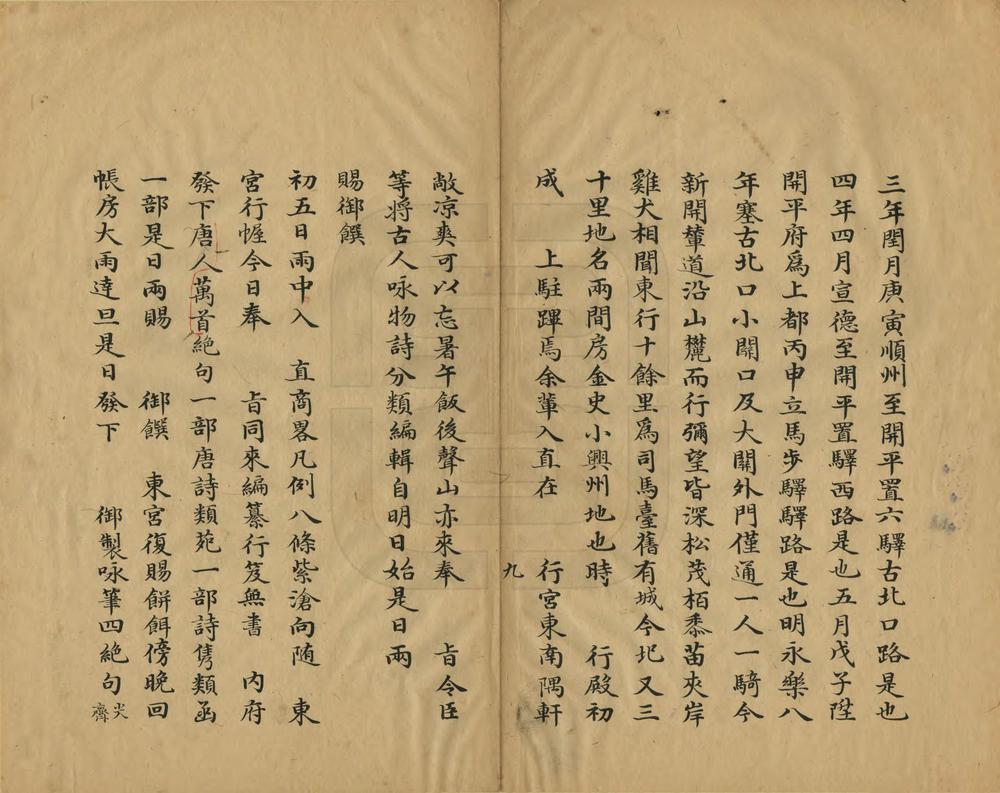 三年閏月庚寅順州至開平置六驛古北口路是也
四年四月宣德至開平置驛西路是也五月戊子陞
開平府爲上都丙申立馬步驛驛路是也明永樂八
年塞古北口小關口及大關外門僅通一人一騎今
新開輦道沿山麓而行彌望皆深松茂栢黍苗夾岸
雞犬相聞東行十餘里爲司馬臺舊有城今圮又三
十里地名兩間房金史小興州地也時　　行殿初
成　　上駐蹕焉余輩入直在　　行宮東南隅軒
九
敞凉爽可以忘暑午飯後聲山亦來奉　　旨令臣
等將古人咏物詩分類編輯自明日始是日兩
賜御饌
初五日雨中入　直商畧凡例八條紫滄向随　東
宮行幄今日奉　　旨同來編纂行笈無書　內府
發下唐人萬首絕句一部唐詩類苑一部詩雋類函
一部是日兩賜　　御饌　東宮復賜餅餌傍晚回
帳房大雨達旦是日　發下　　御製咏筆四絕句尖齊